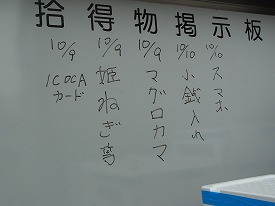 拾得物掲示板
10/10 スマホ
10/10 小銭入れ
10/9 マグロカマ
10/9 姫ねぎ等
10/9 ICOCAカード